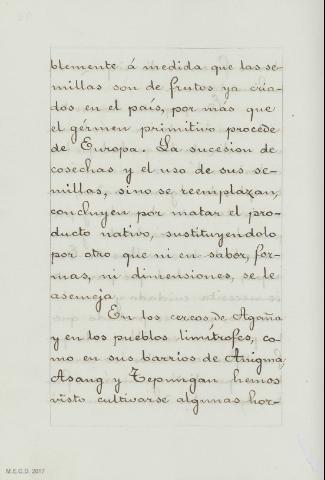 blemente á medida que las se-
millas son de frutos ya cria-
dos en el país, por más que
el gérmen primitivo procede
de Europa. La sucesion de
cosechas y el uso de sus se-
millas, sino se reemplazan,
concluyen por matar el pro-
ducto nativo, sustituyendolo
por otro que ni en sabor, for-
mas, ni dimensiones, se le
asemeja
En los cercos de Agaña
y en los pueblos limítrofes, co-
mo en sus barrios de Anigma,
Asang y Tepungan hemos
visto cultivarse algunas hor-
M.E.C.D. 2017